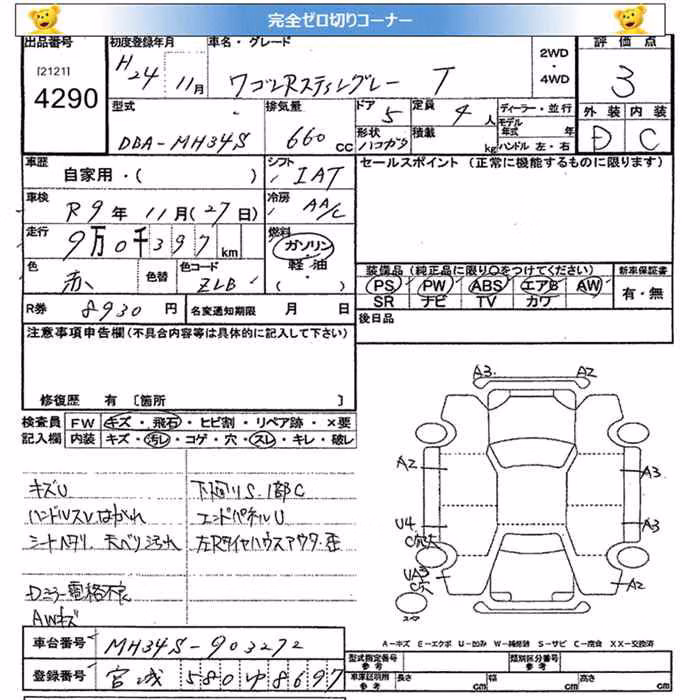 完全ゼロ切りコーナー
出品番号
[2121]
4290
初度登録年月
H24 11月
車名・グレード
ワゴンRスティングレー T
2WD
・
4WD
評価点
3
外装 内装
D C
型式
DBA-MH34S
排気量
660 CC
ドア 5
形状 ハコガタ
定員 4人
積載 kg
ディーラー・並行
モデル年式 年
ハンドル 左・右
車歴
自家用・( )
シフト
IAT
セールスポイント (正常に機能するものに限ります)
車検
R9年 11月(27日)
冷房
AA/C
走行
9万0千397km
燃料
ガソリン
軽・油
・( )
色
赤
色替
色コード
ZLB
装備品(純正品に限り○をつけてください)
PS PW ABS エアB AW
SR ナビ TV カワ
新車保証書
有・無
R券 8930円
名変通知期限 月 日
後日品
注意事項申告欄(不具合内容等は具体的に記入して下さい)
修復歴 有 [箇所 ]
検査員記入欄
FW キズ・飛石・ヒビ割・リペア跡・×要
内装 キズ・汚レ・コゲ・穴・スレ・キレ・破レ
キズU
ハンドルスレ、はがれ
シートヘタリ、天ベリ汚れ
Dミラー電格不良
AWキズ
下廻りS、1部C
エンドパネルU
左Rタイヤハウスアウタ・歪
A3 A2
A2
A3
U4
C穴大
A3
UA3
C穴
A2
A-キズ E-エクボ U-凹み W-補修跡 S-サビ C-腐食 XX-交換済
車台番号 MH34S-903272
登録番号 宮城 580 ゆ 8697
型式指定番号 参考
類別区分番号 参考
車庫証明用 参考
長さ cm
幅 cm
高さ cm